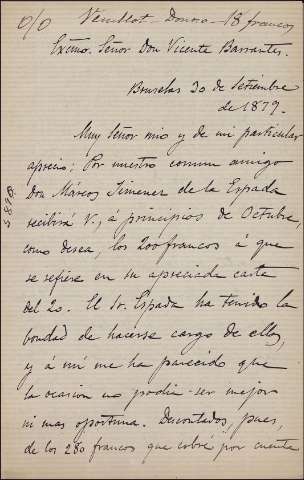 0/0 Veuillot Donoso - 18 francos
Excmo. Señor Don Vicente Barrantes.
Bruselas 30 de Setiembre
de 1879.
Muy Señor mio y de mi particular
aprecio: Por nuestro comun amigo
Don Márcos Jimenez de la Espada
recibirá V., á principios de Octubre,
como desea, los 200 francos á que
se refiere en su apreciada carta
del 20. El Sr. Espada ha tenido la
bondad de hacerse cargo de ellos,
y á mí me ha parecido que
la ocasion no podia ser mejor
ni mas oportuna. Descontados, pues,
de los 280 francos que cobré por cuenta